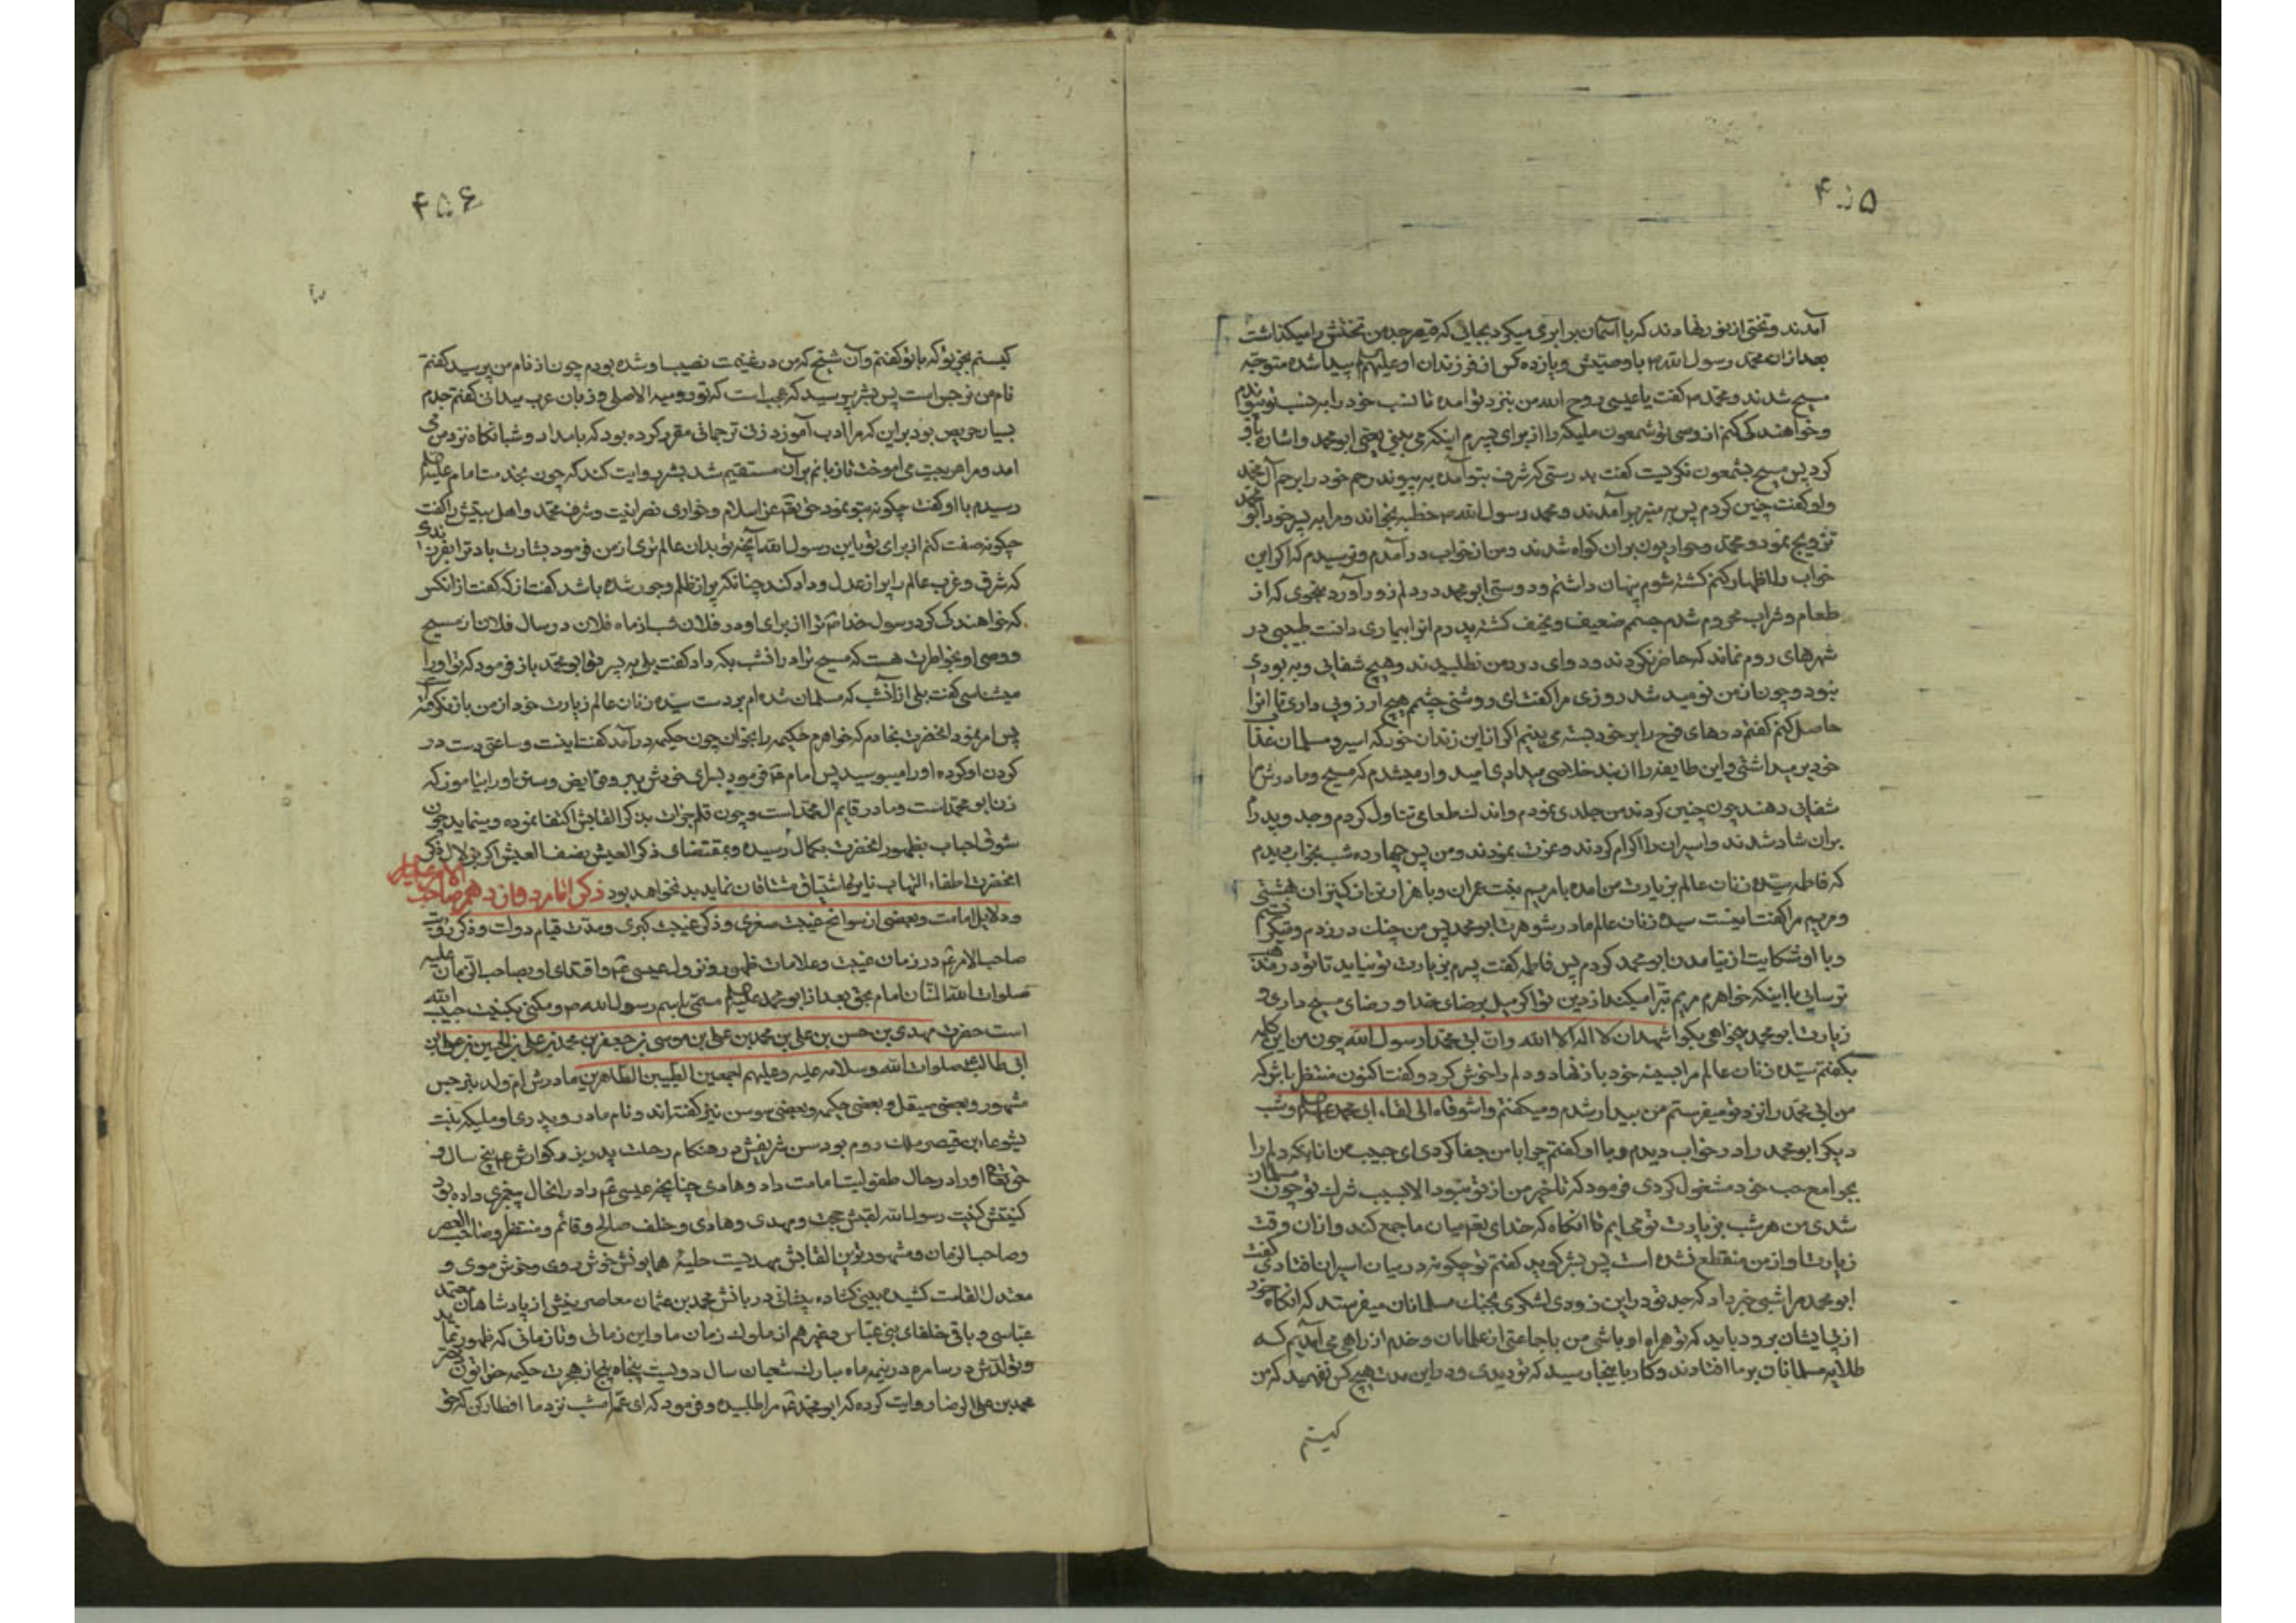 ۴۵۵
آمدند و تختی از نور نهادند که با آسمان برابری میکرد بجایی که قیصر جد من تختش را میگذاشت
بعد از ان محمد رسول الله ص با وصیش و یازده کس از فرزندان او علیهم پیدا شده متوجه
مسیح شدند و محمد ص گفت یا عیسی روح الله من بنزد تو امده تا نسب خود را بر نسب تو پیوندم
و خواهندگی کنم از وصی تو شمعون ملیکه را از برای پسرم اینکه می بینی یعنی ابو محمد و اشاره باو
کرد پس مسیح بشمعون نگریست گفت بدرستی که شرف بتو آمده به پیوند رحم خود را برحم آل محمد
و او گفت چنین کردم پس به منبر بر آمدند و محمد رسول الله ص خطبه بخواند و مرا به پسر خود ابو محمد
تزویج نمود و محمد و حواریون بران کواه شدند و من از خواب در آمدم و ترسیدم که اگر این
خواب را اظهار کنم کشته شوم پنهان داشتم و دوستی ابو محمد در دلم زور آورد بنحوی که از
طعام و شراب محروم شدم جسم ضعیف و نحیف گشته پدرم انرا بیماری دانست طبیبی در
شهرهای روم نماند که حاضر نکردند و دوای درد من نطلبیدند و هیچ شفائی و به بودی
نبود و چون از من نومید شد روزی مرا گفت ای روشنی چشم هیچ آرزویی داری تا انرا
حاصل کنم گفتم درهای فرح را بر خود بسته می بینم اگر از این زندان خود که اسیر و مسلمان عذاب
خود بر میداشتی و این طایفه را از بند خلاصی میدادی امید وار میشدم که مسیح و مادرش مرا
شفائی دهند چون چنین کردند من جلدی نمودم و اندک طعامی تناول کردم و جد و پدرم
بران شاد شدند و اسیران را اکرام کردند و عزت نمودند و من پس چهارده شب بخواب دیدم
که فاطمه سیده زنان عالم بزیارت من امده با مریم بنت عمران و با هزار تن از کنیزان بهشتی
و مریم مرا گفت اینست سیده زنان عالم مادر شوهرت ابو محمد پس من چنگ در زدم و میگریستم
و با او شکایت از نیامدن ابو محمد کردم پس فاطمه گفت پسرم بزیارت تو نیاید تا تو در مذهب
ترسائی با اینکه خواهرم مریم تبرا میکند از دین تو اگر میل برضای خدا و رضای مسیح داری و
زیارت ابو محمد میخواهی بگو اشهد ان لا اله الا الله و ان ابی محمدا رسول الله چون من این کلمه
بگفتم سیده زنان عالم مرا بسینه خود باز نهاد و دلم را خوش کرد و گفت اکنون منتظر باش که
من ابی محمد را نزد تو میفرستم من بیدار شدم و میگفتم وا شوقاه الی لقاء ابی محمد علیه السلم و شب
دیگر ابو محمد را در خواب دیدم و با او گفتم چرا با من جفا کردی ای حبیب من انا یکه دلم را
بجوامع حب خود مشغول کردی فرمود که تاخیر من از تو نبود الا بسبب شرک تو چون مسلمان
شدی من هر شب بزیارت تو می ایم تا انگاه که خدای تع میان ما جمع کند و از ان وقت
زیارت او از من منقطع نشده است پس بشر گوید گفتم تو چگونه در میان اسیران افتادی گفت
ابو محمد مرا شبی خبر داد که جد تو در این زودی لشکری بجنک مسلمانان میفرستد که انگاه خود
از پی ایشان برود باید که تو همراه او باشی من با جماعتی از غلامان و خدم از راهی می آمدیم که
طلایه مسلمانان بر ما افتادند و کار باینجا رسید که تو دیدی و در این مدت هیچ کس نفهمید که من
کیستم
۴۵۶
کیستم بجز تو که با تو گفتم و آن شیخ که من در غنیمت نصیب او شده بودم چون از نام من پرسید گفتم
نام من نرجس است پس بشر پرسید که عجب است که تو رومیه الاصلی و زبان عرب میدانی گفتم جدم
بسیار حریص بود بر این که مرا ادب آموزد زنی ترجمانی مقرر کرده بود که بامداد و شبانگاه نزد من می
امد و مرا عربیت می اموخت تا زبانم بر آن مستقیم شد بشر روایت کند که چون بخدمت امام علیه السلم
رسیدم با او گفت چگونه بتو نمود حق تع عز اسلام و خواری نصرانیت و شرف محمد و اهل بیتش را گفت
چگونه صفت کنم از برای تو یابن رسول الله آنچه تو بدان عالم تری از من فرمود بشارت باد ترا بفرزندی
که شرق و غرب عالم را پر از عدل و داد کند چنانکه پر از ظلم و جور شده باشد گفت از که گفت از انکس
که خواهندگی کرد رسول خدا ص ترا از برای او در فلان شب از ماه فلان در سال فلان از مسیح
و وصی او بخاطرت هست که مسیح ترا در انشب بکه داد گفت بلی به پسر تو ابو محمد باز فرمود که تو او را
میشناسی گفت بلی از آنشب که مسلمان شده ام بر دست سیده زنان عالم زیارت خود از من باز نگرفته
پس امر نمود انحضرت بخادم که خواهرم حکیمه را بخوان چون حکیمه در آمد گفت اینست و ساعتی دست در
گردن او کرده او را میبوسید پس امام ع فرمود بسرای خودش ببر و فرایض و سنن او را بیاموز که
زن ابو محمد است و مادر قایم ال محمد است و چون قلم بذکر القابش اکتفا نموده و مینماید چون
شوق احباب بظهور انحضرت بکمال رسیده و بمقتضای ذکر العیش نصف العیش اگر بزلال ذکر
انحضرت اطفاء التهاب نایره اشتیاق مشتاقان نماید بد نخواهد بود ذکر امام دوازدهم صاحب الامر علیه
و دلایل امامت و بعضی از سوانح غیبت صغری و ذکر غیبت کبری و مدت قیام دولت و ذکر رویت
صاحب الامر ع در زمان غیبت و علامات ظهور و نزول عیسی ع و اقتدای او بصاحب الزمان علیه
صلوات الله المنان امام بحق بعد از ابو محمد علیه السلم مسمی باسم رسول الله ص و مکنی بکنیت حبیب الله
است حضرت مهدی بن حسن بن علی بن محمد بن علی بن موسی بن جعفر بن محمد بن علی بن الحسین بن علی بن
ابی طالب صلوات الله و سلامه علیه و علیهم اجمعین الطیبین الطاهرین مادرش ام ولد بنرجس
مشهور و بعضی صیقل و بعضی حکیمه و بعضی سوسن نیز گفته اند و نام مادر و پدری او ملیکه بنت
یشوعاء بن قیصر ملک روم بود سن شریفش در هنگام رحلت پدر بزرگوارش ع پنج سال و
حق تع او را در حال طفولیت امامت داد و هادی چنانچه عیسی ع را در انحال پیغمبری داده بود
کنیتش کنیت رسول الله لقبش حجت و مهدی و هادی و خلف صالح و قائم و منتظر و صاحب العصر
و صاحب الزمان و مشهورترین القابش مهدیست حلیهٔ همایونش خوش روی و خوش موی و
معتدل القامت کشیده بینی گشاده پیشانی دربانش محمد بن عثمان معاصر بخشی از پادشاهان معتمد
عباسی و باقی خلفای بنی عباس و غیرهم از ملوک زمان ما و این زمانی و تا زمانی که ظهور نماید
و تولدش در سامره در نیمه ماه مبارک شعبان سال دویست پنجاه پنج از هجرت حکیمه خواتون دختر
محمد بن علی الرضا روایت کرده که ابو محمد ع مرا طلبیده و فرمود که ای عمه امشب نزد ما افطار کن که حق